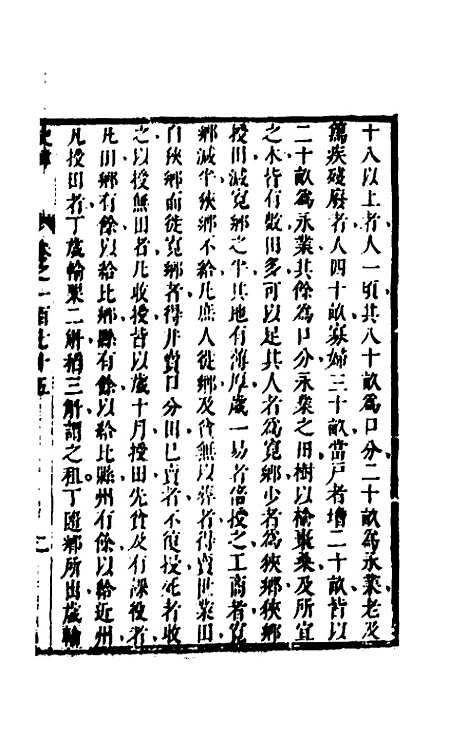 十八以上者人一頃其八十畝爲口分二十畝爲永業老及
篤疾殘廢者人四十畝寡婦三十畝當戶者增二十畝皆以
二十畝爲永業其餘爲口分永業之田樹以榆棗桑及所宜
之木皆有數田多可以足其人者爲寬鄉少者爲狹鄉狹鄉
授田減寬鄉之半其地有薄厚歲一易者倍授之工商者寬
鄉減半狹鄉不給凡庶人徙鄉及貧無以葬者得賣世業田
自狹鄉而徙寬鄉者得并賣口分田已賣者不復授死者收
之以授無田者凡收授皆以歲十月授田先貧及有課役者
凡田鄉有餘以給比鄉縣有餘以給比縣州有餘以給近州
凡授田者丁歲輸粟二斛稻三斛謂之租丁隨鄉所出歲輸
卷之一百九十五 二